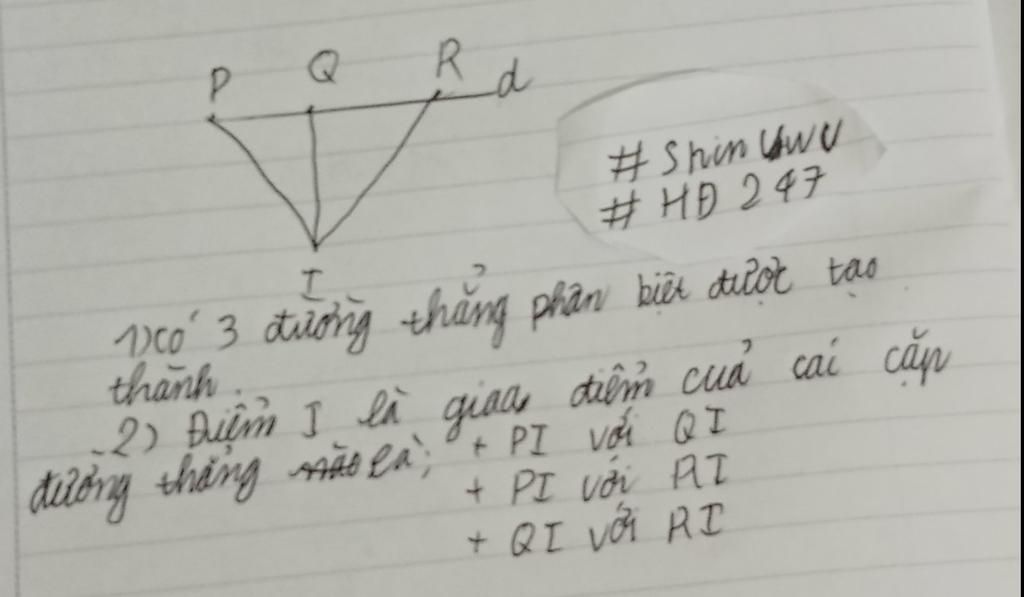 P Q R d
I
# Shin UwU
# HĐ 247
1) Có 3 đường thẳng phân biệt được tạo
thành.
2) Điểm I là giao điểm cuả cai cặp
đường thẳng nào là; + PI với QI
+ PI với RI
+ QI với RI